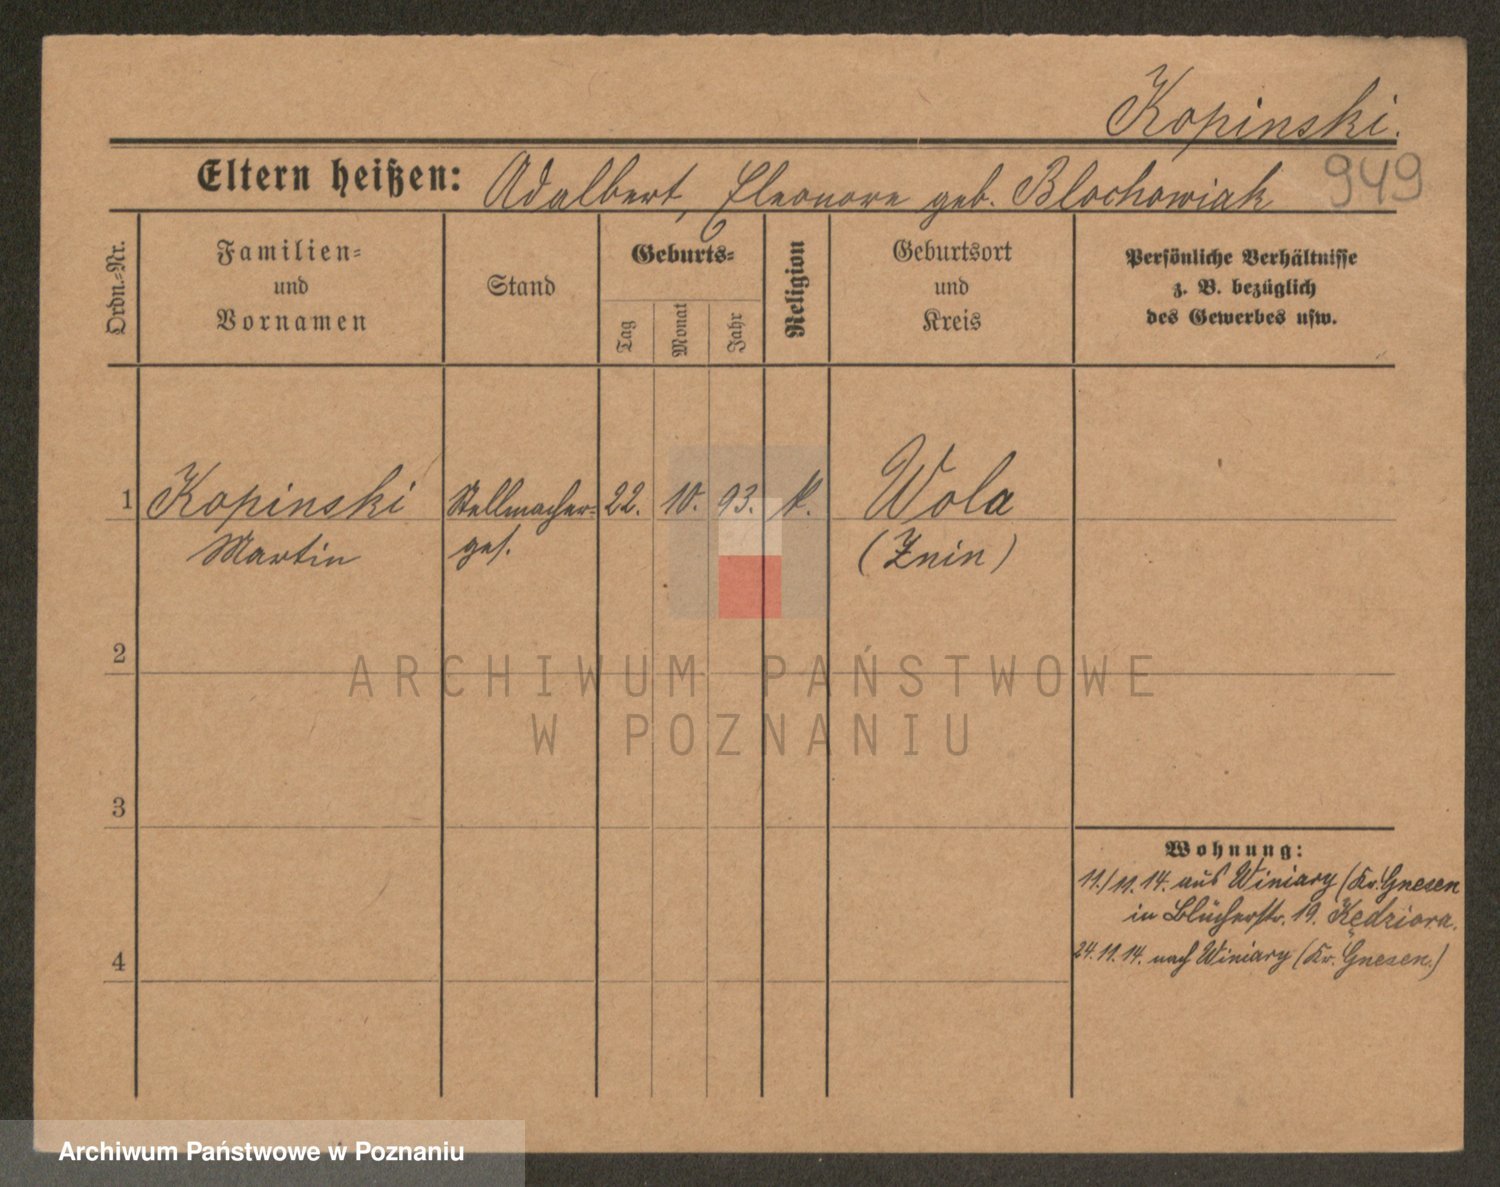 Kopinski.
Eltern heißen: Adalbert, Eleonore geb. Blochowiak
949
Ordn.-Nr.
Familien-
und
Vornamen
Stand
Geburts-
Tag
Monat
Jahr
Religion
Geburtsort
und
Kreis
Persönliche Verhältnisse
z. B. bezüglich
des Gewerbes usw.
1 Kopinski Stellmacher- 22. 10. 93. k. Wola
Martin ges. (Znin)
2
3
4
Wohnung:
11./11. 14. aus Winiary (Kr. Gnesen
in Blücherstr. 19. Kędziora.
24. 11. 14. nach Winiary (Kr. Gnesen.)
ARCHIWUM PAŃSTWOWE
W POZNANIU
Archiwum Państwowe w Poznaniu